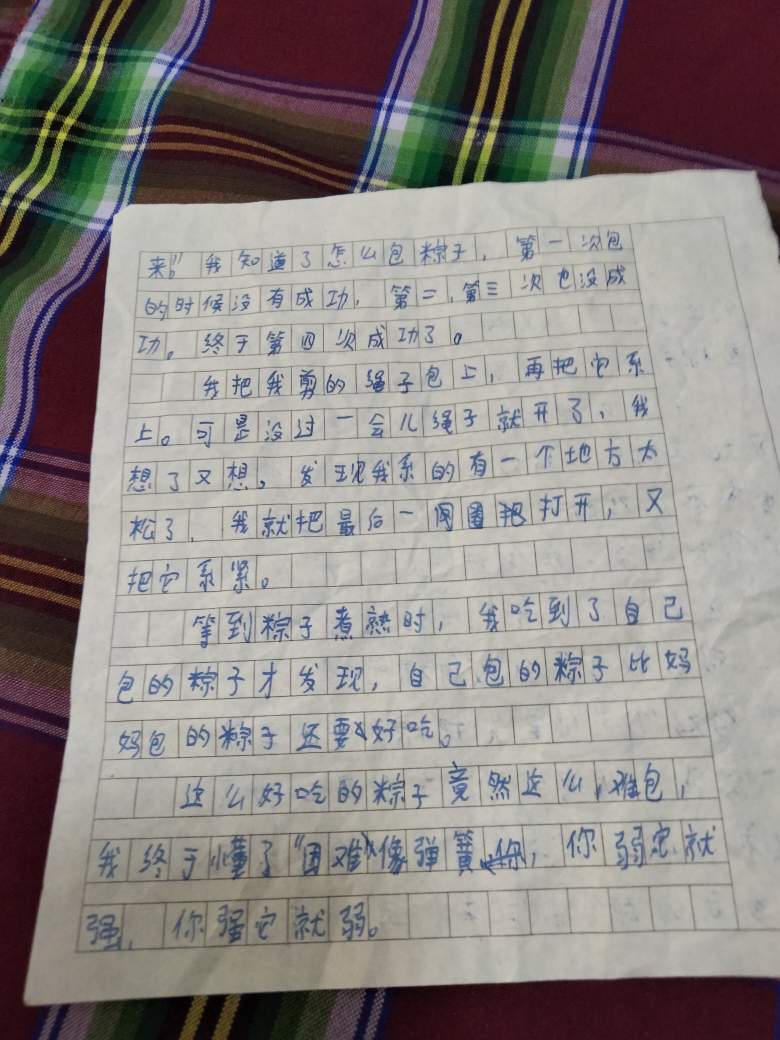 来。”我知道了怎么包粽子，第一次包
的时候没有成功，第二、第三次也没成
功。终于第四次成功了。
我把我剪的绳子包上，再把它系
上。可是没过一会儿绳子就开了，我
想了又想，发现我系的有一个地方太
松了，我就把最后一圈把打开，又
把它系紧。
等到粽子煮熟时，我吃到了自己
包的粽子才发现，自己包的粽子比妈
妈包的粽子还要好吃。
这么好吃的粽子竟然这么难包，
我终于懂了“困难”像弹簧，你弱它就
强，你强它就弱。